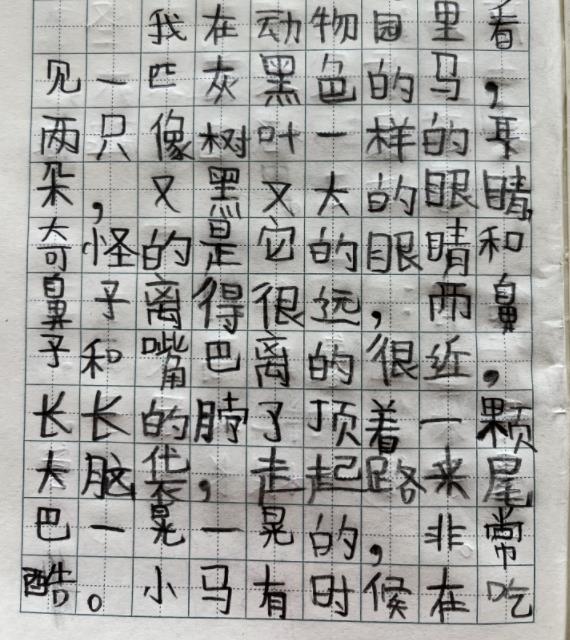 我在动物园里看
见一匹灰黑色的马，
两只像树叶一样的耳
朵，又黑又大的眼睛，
奇怪的是它的眼睛和
鼻子离得很远，而鼻
子和嘴巴离的很近，
长长的脖子顶着一颗
大脑袋，走起路来尾
巴一晃一晃的，非常
酷。小马有时候在吃